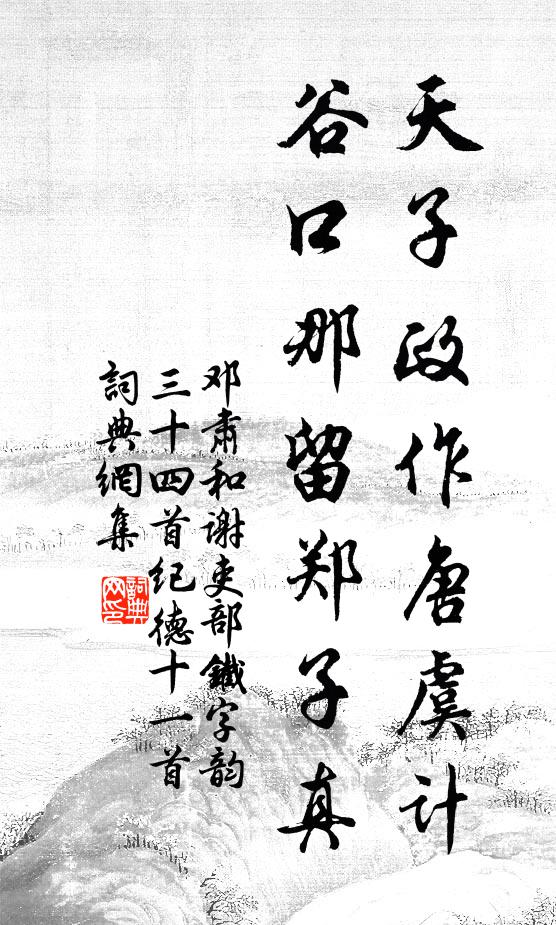 天子政作唐虞计
谷口那留郑子真
邓肃和谢吏部鐵字韵
三十四首纪德十一首
詞典網集